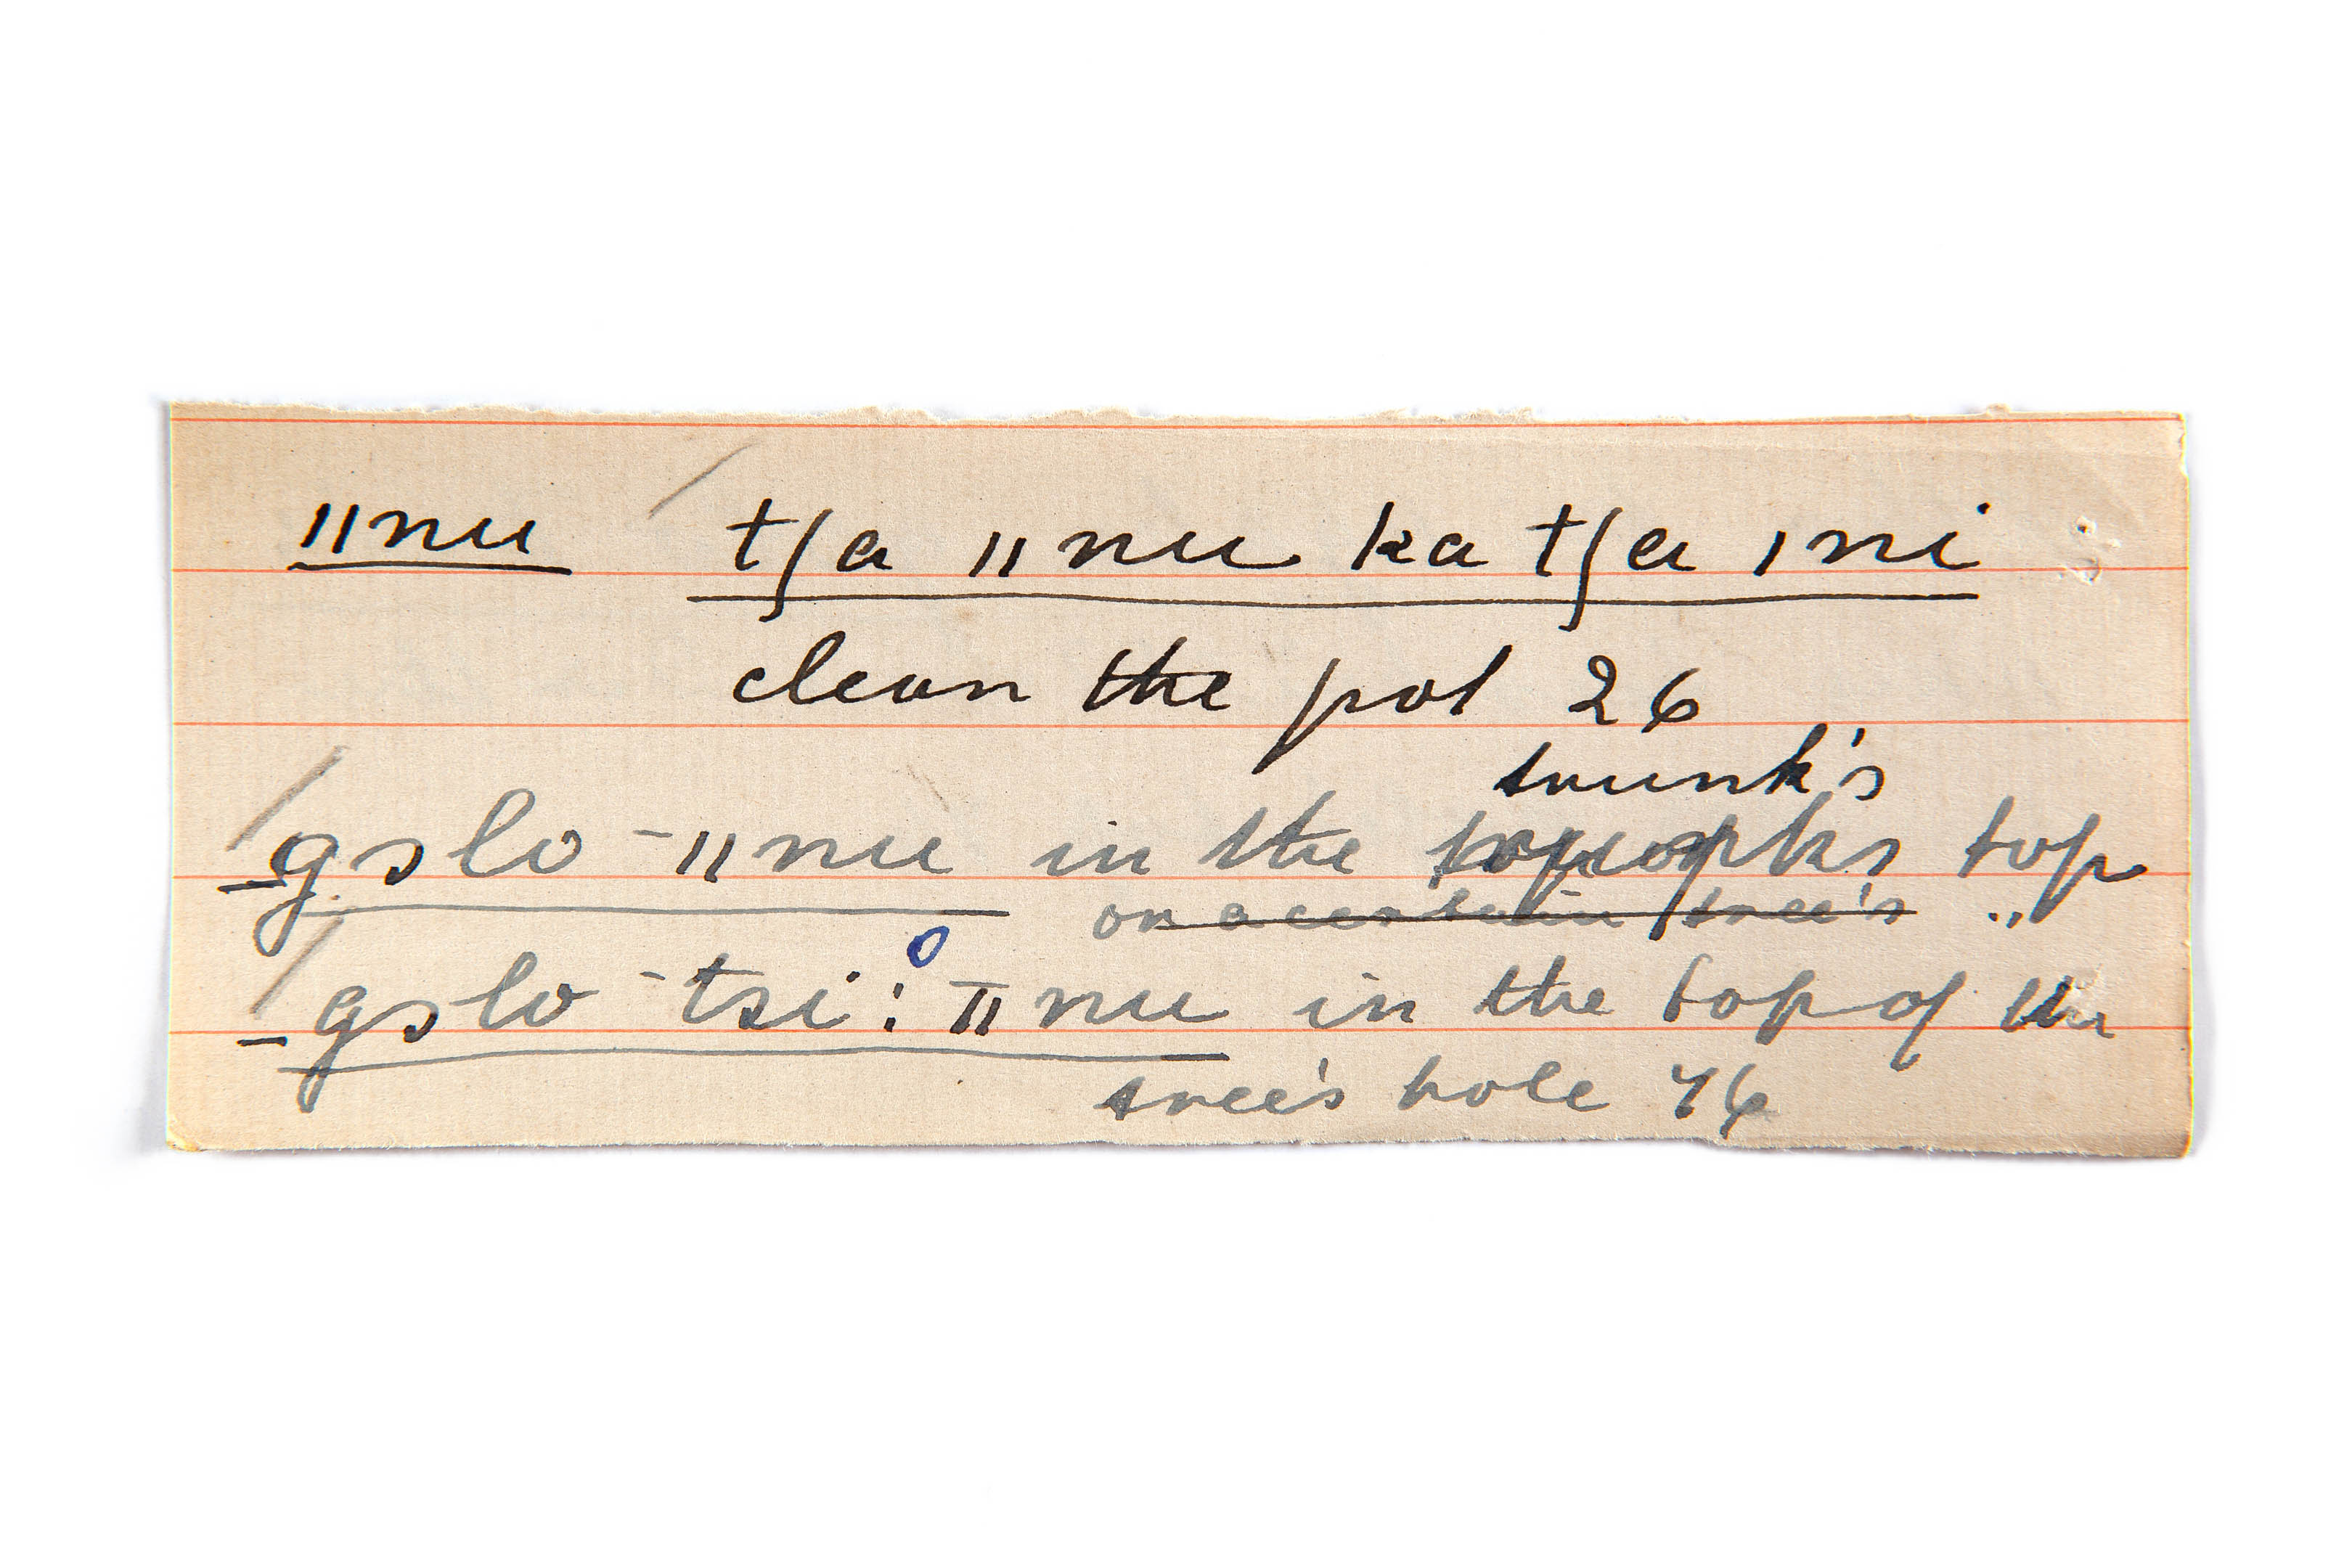 ǁnu tʃa ǁnu ka tʃa ǀni
clean the pot 26
trunk's
gslo -ǁnu in the top
on a certain tree's "
gslo -tsi: ǁnu in the top of the
tree's hole 76